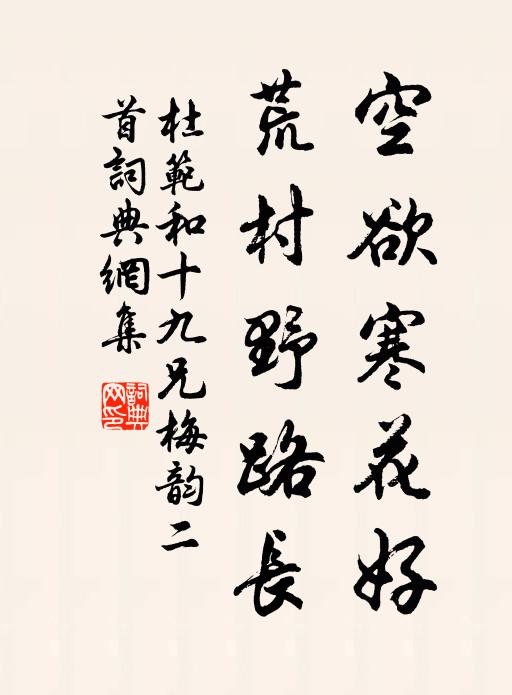 空欲寒花好
荒村野路長
杜範和十九兄梅韵二
首詞典網集
詞典
网印